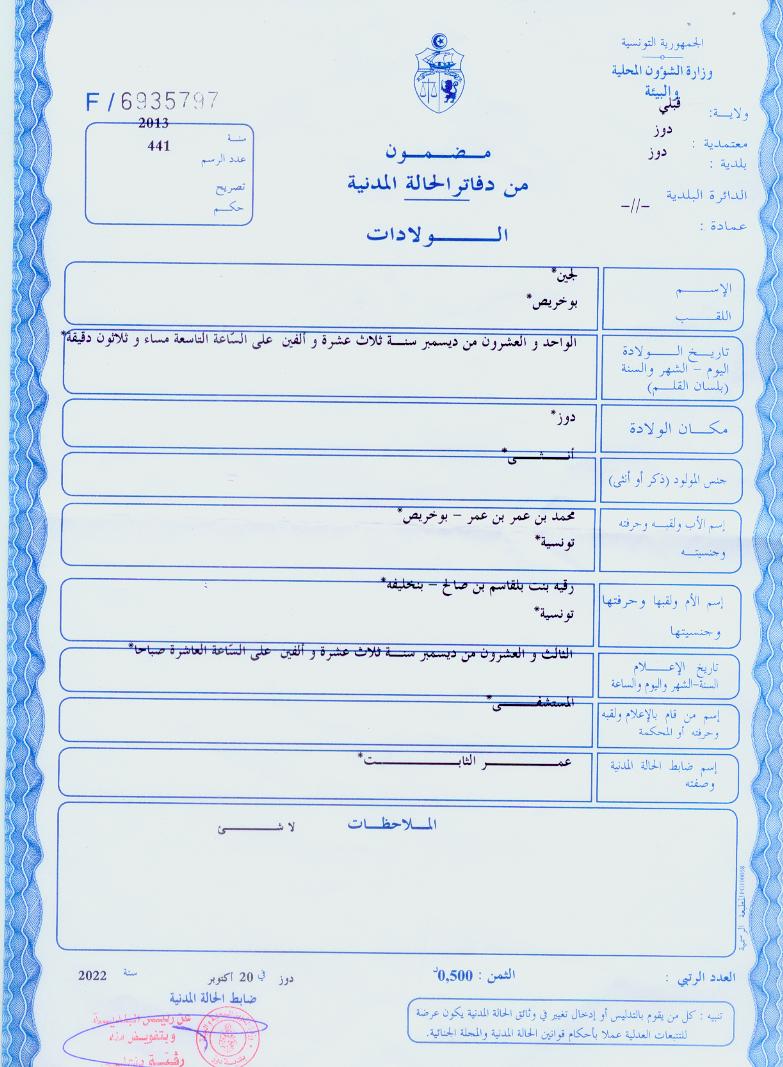 الجمهورية التونسية
وزارة الشؤون المحلية
والبيئة
ولاية: قبلي
معتمدية : دوز
بلدية : دوز
الدائرة البلدية
عمادة : -//-
F / 6935797
سنة 2013
عدد الرسم 441
تصريح
حكم
مضمون
من دفاتر الحالة المدنية
الولادات
الإسم لجين*
اللقب بوخريص*
تاريخ الولادة
اليوم - الشهر والسنة
(بلسان القلم)
الواحد و العشرون من ديسمبر سنة ثلاث عشرة و ألفين على السّاعة التاسعة مساء و ثلاثون دقيقة*
مكان الولادة دوز*
جنس المولود (ذكر أو أنثى) أنثى*
إسم الأب ولقبه وحرفته محمد بن عمر بن عمر - بوخريص*
وجنسيته تونسية*
إسم الأم ولقبها وحرفتها رقيه بنت بلقاسم بن صالح - بنخليفه*
وجنسيتها تونسية*
تاريخ الإعلام
السنة-الشهر واليوم والساعة
الثالث و العشرون من ديسمبر سنة ثلاث عشرة و ألفين على السّاعة العاشرة صباحا*
إسم من قام بالإعلام ولقبه
وحرفته أو المحكمة
المستشفى*
إسم ضابط الحالة المدنية
وصفته
عمر الثابت*
الملاحظات لا شئ
المطبعة الرسمية
العدد الرتبي : الثمن : 0,500د
دوز في 20 أكتوبر سنة 2022
ضابط الحالة المدنية
تنبيه : كل من يقوم بالتدليس أو إدخال تغيير في وثائق الحالة المدنية يكون عرضة
للتتبعات العدلية عملا بأحكام قوانين الحالة المدنية والمجلة الجنائية.
عن رئيس البلدية
وبتفويض منه